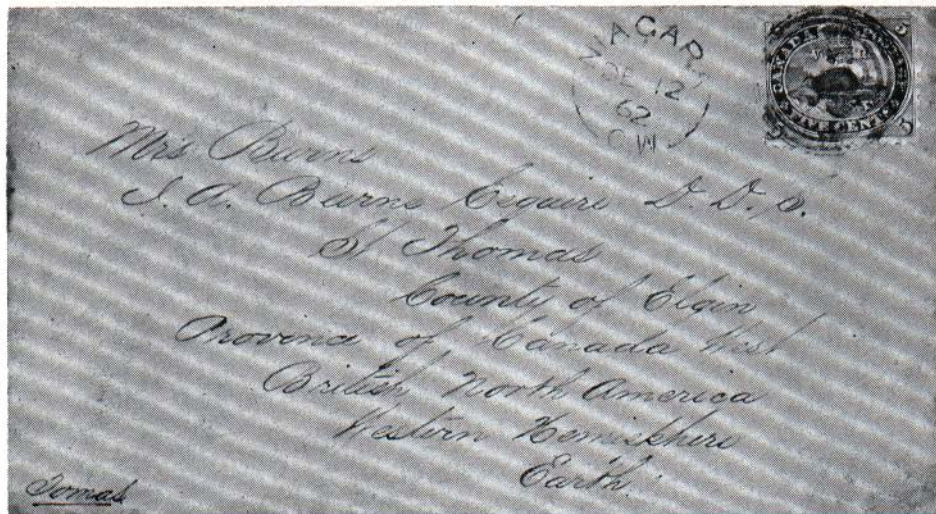 NIAGARA
DE 12
62
C W
CANADA
FIVE CENTS
Mrs Burns
J. A. Burns Esquire D. D. S.
St Thomas
County of Elgin
Province of Canada West
British North America
Western Hemisphere
Earth.